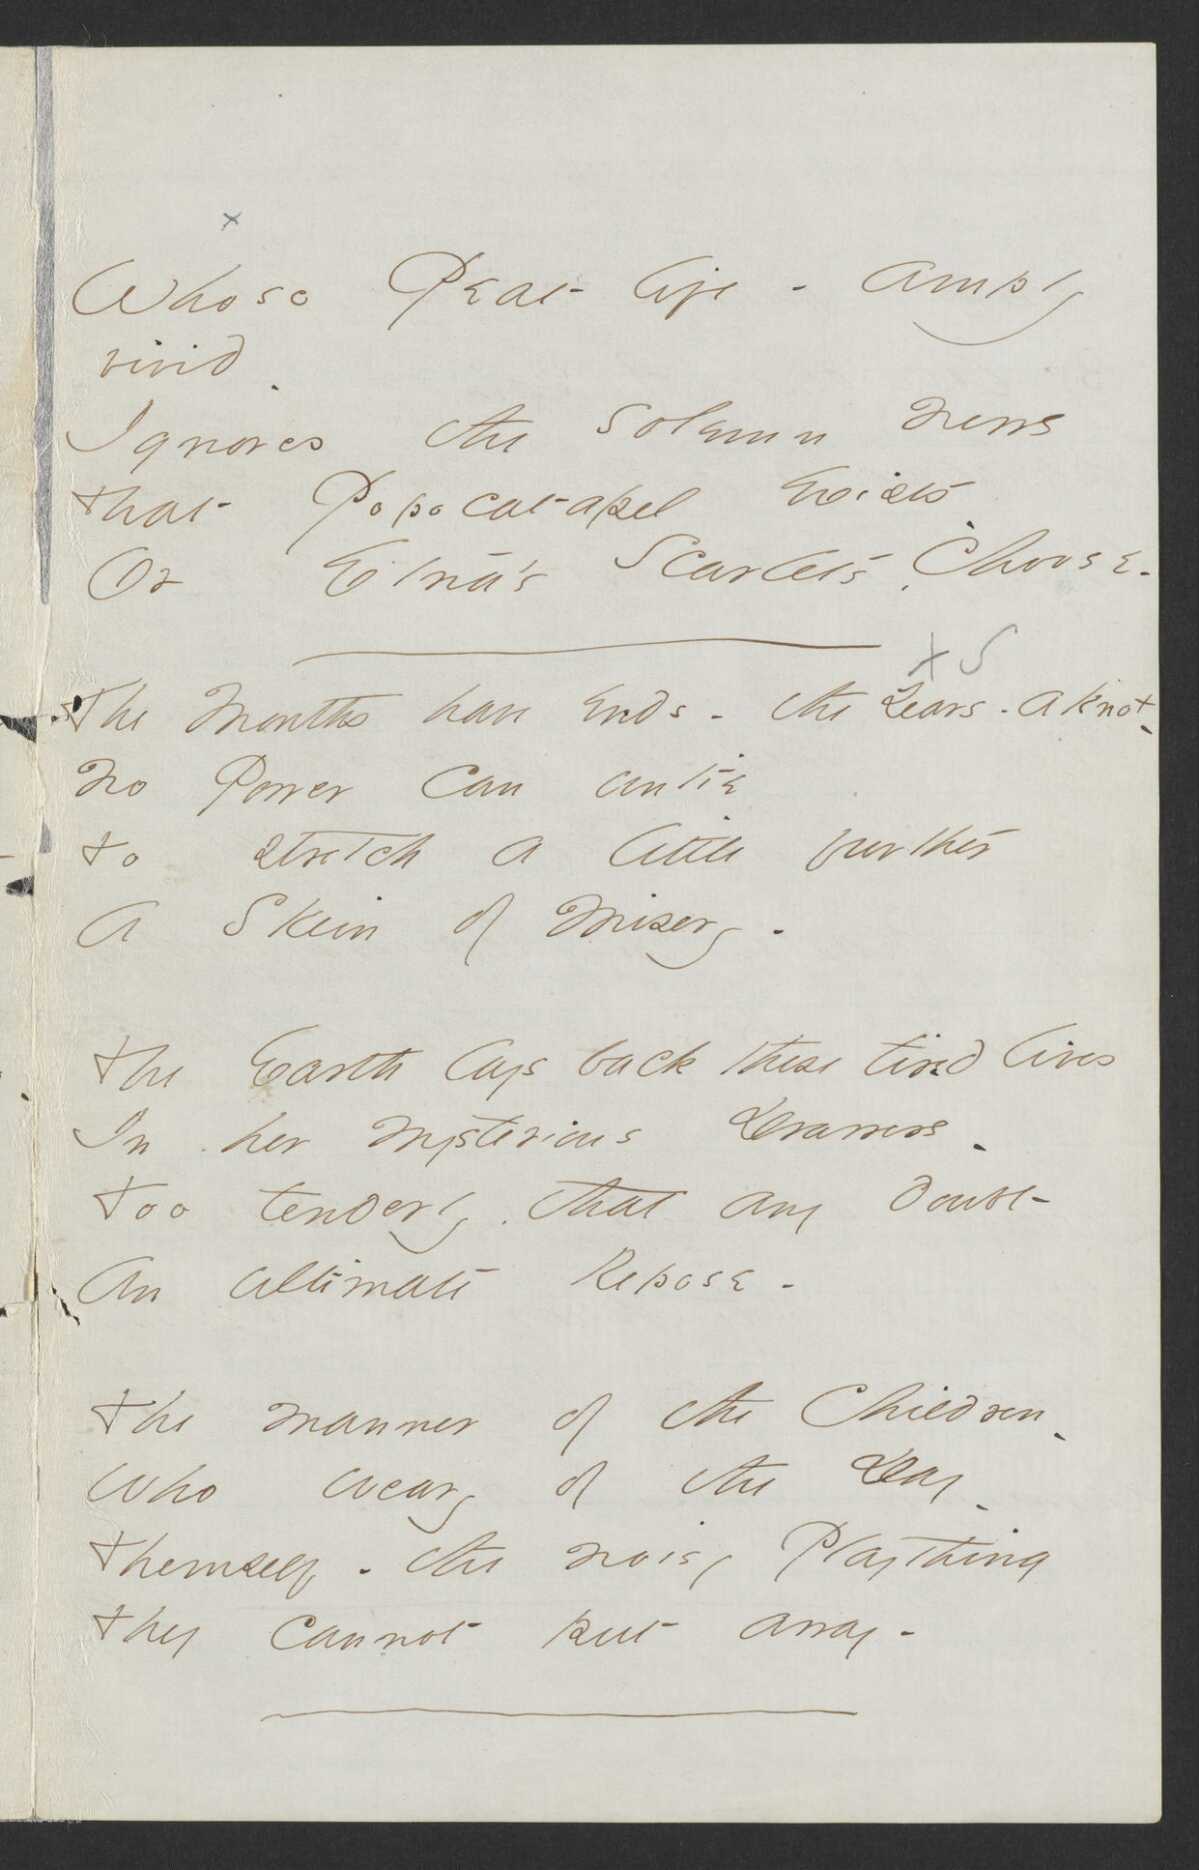 x
Whose Peat life - amply
vivid -
Ignores the solemn News
That Popocatapel exists -
Or Etna's Scarlets, Choose -
x S
The Months have Ends - the Years - a knot -
No Power can untie
To stretch a little further
A Skein of Misery -
The Earth lays back these tired lives
In her mysterious Drawers -
Too tenderly, that any doubt
An ultimate Repose -
The manner of the Children -
Who weary of the Day -
Themself - the noisy Plaything
They cannot put away -